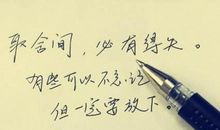 取舍间，必有得失。
有些可以不忘记
但一定要放下